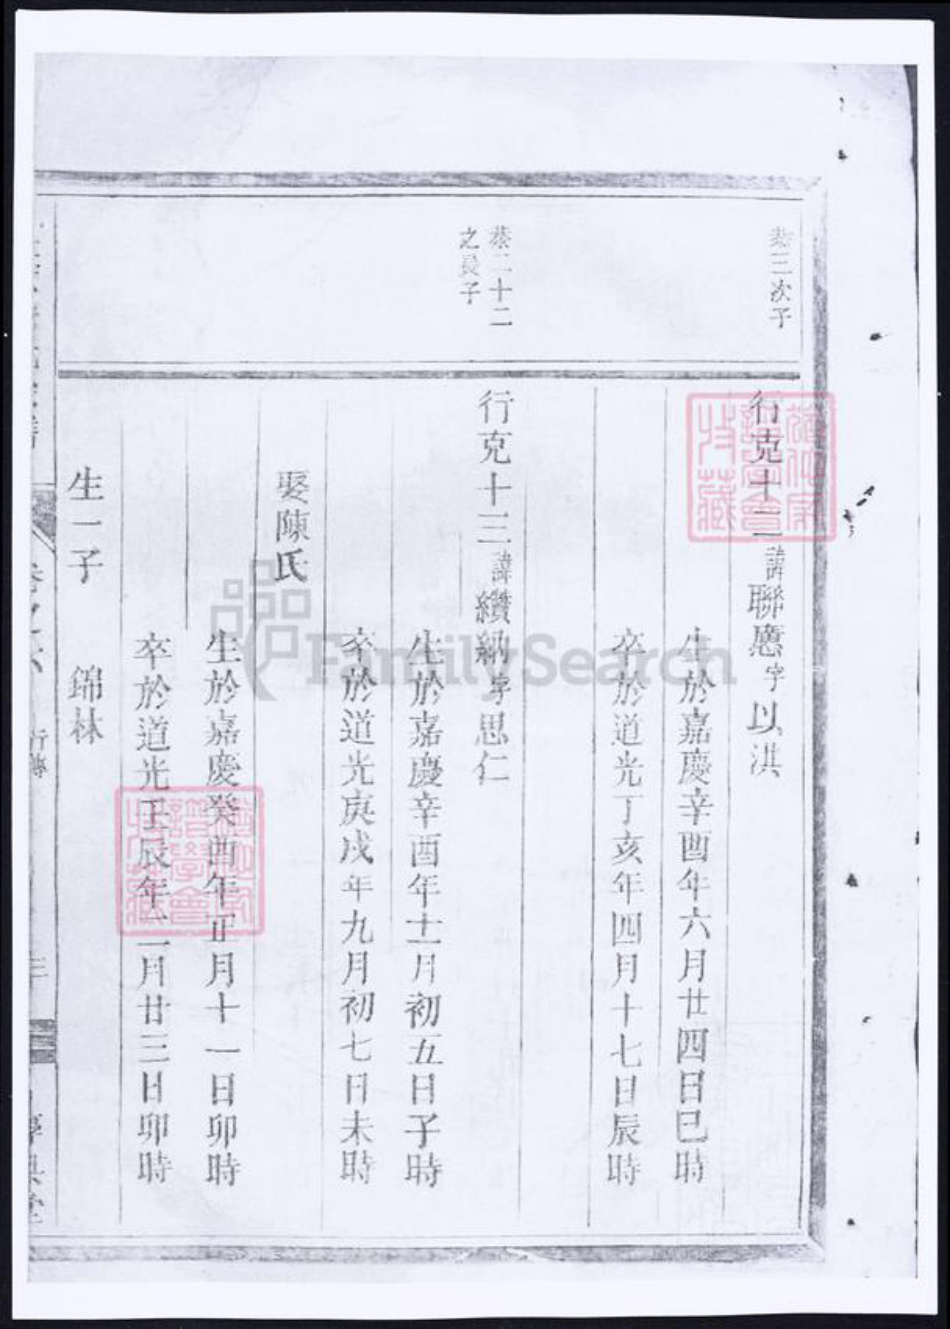 恭三次子
行克十二諱聯應字以洪
生於嘉慶辛酉年六月廿四日巳時
卒於道光丁亥年四月十七日辰時
恭二十二
之長子
行克十三諱纘納字思仁
生於嘉慶辛酉年十一月初五日子時
卒於道光庚戌年九月初七日未時
娶陳氏
生於嘉慶癸酉年正月十一日卯時
卒於道光壬辰年二月廿三日卯時
生一子 錦林
卷之六 行傳
FamilySearch